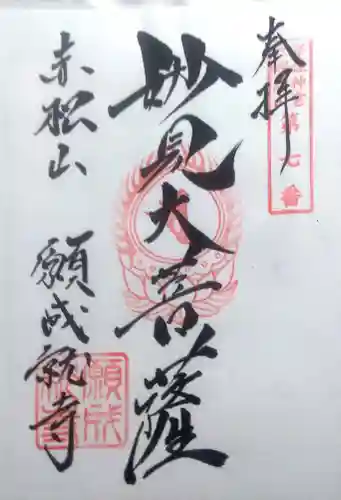 奉拝
第七番
妙見大菩薩
赤松山 願成就寺